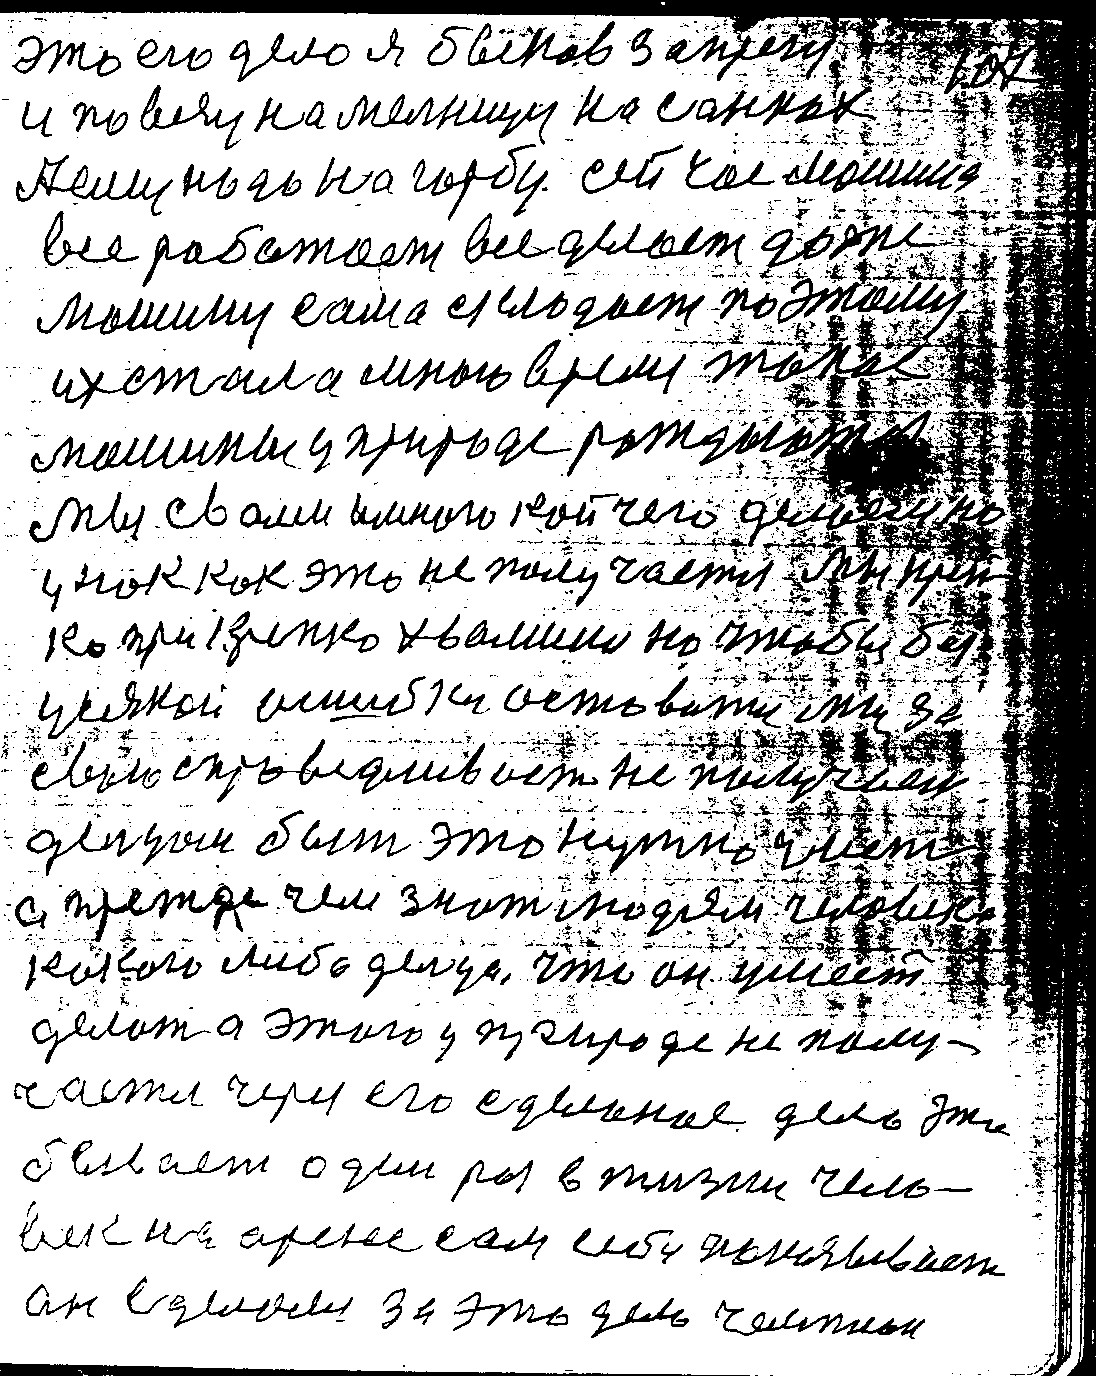 107
это его дело я быков запрягу
и повезу на мелницу на саннах
Нещунодо на горбу. сейчас машина
все работает все делает даже
машину сама складает поэтому
их стала много время такое
машины у природе раждаются
мы. с вами много кой чего делаем но
у нак как это не получается мы креп
ко при крепко хвалимо но чтобы без
усякой ошибки оставати мы за
свою справедливаст не получаем
делцом быт это нужно умет
а прежде чем знат людям человека
какого либо делца. что он умеет
делат а этого у природе не полу-
чается через его сделаное дело эта
бывает один раз в жизни чело-
век на арене сам себя показывает
он сделаем за это дело чемпион